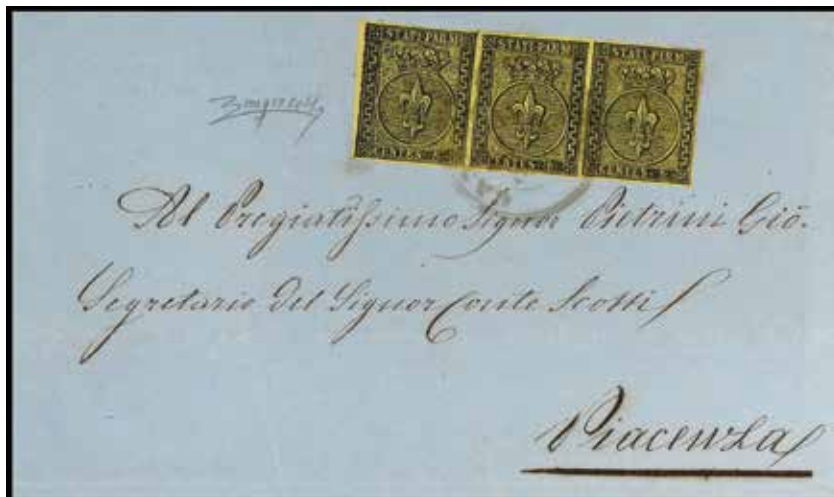 STATI PARM
STATI PARM
STATI PARM
CENTES. 5
CENTES. 5
CENTES. 5
Al Pregiatissimo Signor Pietrini Gio.
Segretario del Signor Conte Scotti
Piacenza